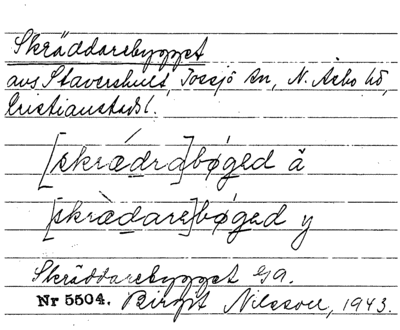 Skräddarebygget
avs Stavershult, Tossjö sn, N. Åsbo hd,
Kristianstads l.
[skrǽdra]bǿgəd ä
[skræ̀darə]bǿgəd y
Skräddarebygget Ga.
Nr 5504. Birgit Nilsson, 1943.